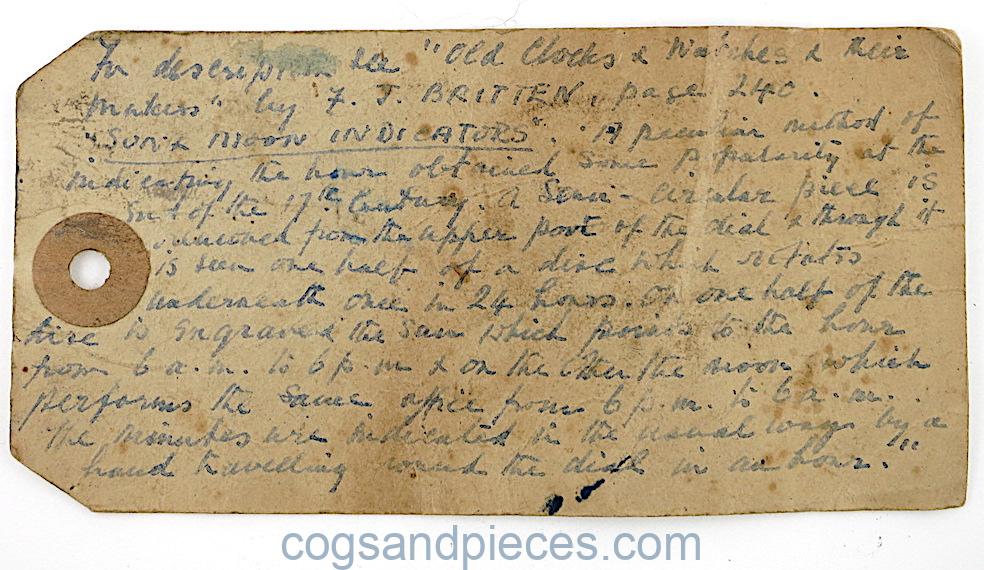 For description see "Old Clocks & Watches & their
makers" by F. J. BRITTEN, page 240.
"SUN & MOON INDICATORS". A peculiar method of
indicating the hour obtained some popularity at the
end of the 17th Century. A Semi-circular piece is
removed from the upper part of the dial & through it
is seen one half of a disc which rotates
underneath once in 24 hours. On one half of the
disc is Engraved the Sun which points to the hour
from 6 a.m. to 6 p.m. & on the other the moon which
performs the same office from 6 p.m. to 6 a.m.
The minutes are indicated in the usual way by a
hand travelling round the dial in an hour."
cogsandpieces.com